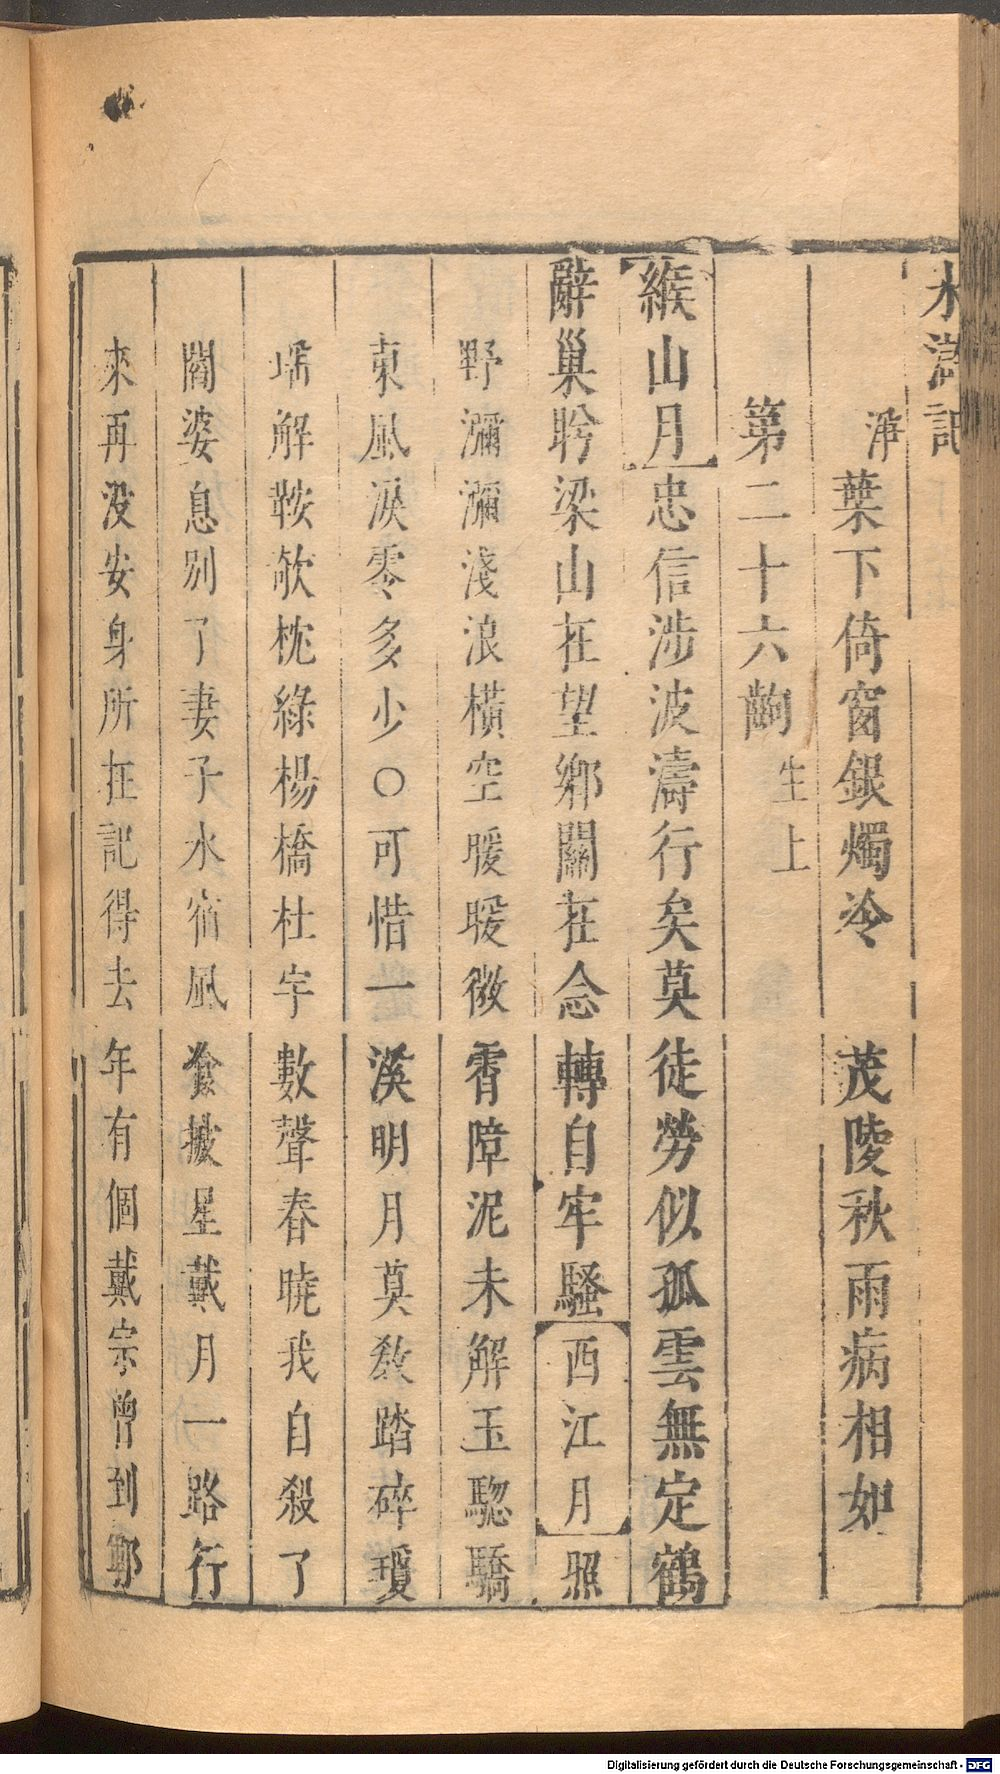 水滸記
淨葉下倚窗銀燭冷 茂陵秋雨病相如
第二十六齣生上
緱山月忠信涉波濤行矣莫徒勞似孤雲無定鶴
辭巢盻梁山在望鄉關在念轉自牢騷西江月照
野瀰瀰淺浪橫空曖曖微霄障泥未解玉驄驕
東風淚零多少○可惜一溪明月莫教踏碎瓊
瑤解鞍欹枕綠楊橋杜宇數聲春曉我自殺了
閻婆息別了妻子水宿風飡披星戴月一路行
來再没安身所在記得去年有個戴宗曾到鄆
Digitalisierung gefördert durch die Deutsche Forschungsgemeinschaft - DFG